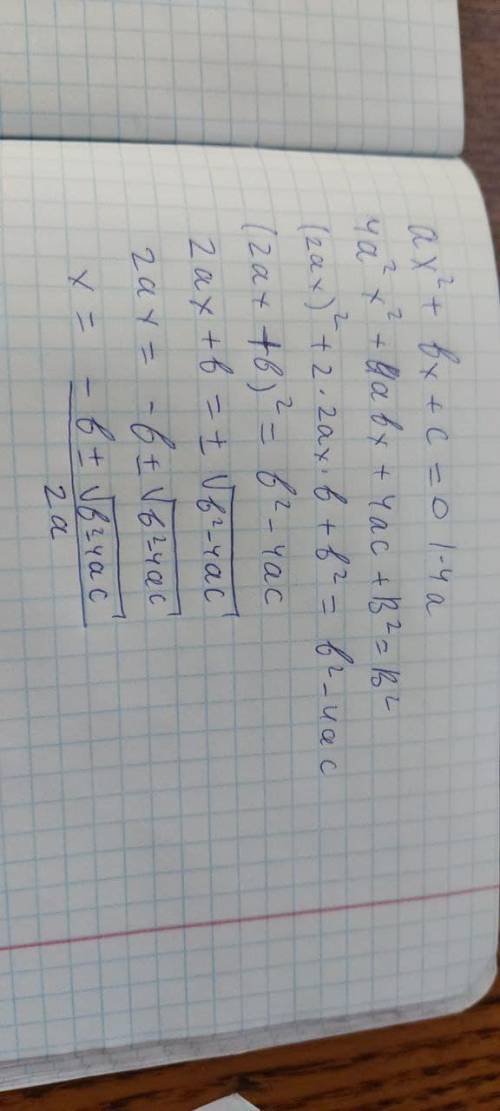 ax² + bx + c = 0 | · 4a
4a²x² + 4abx + 4ac + B² = B²
(2ax)² + 2 · 2ax · b + b² = b² - 4ac
(2ax + b)² = b² - 4ac
2ax + b = ± √b² - 4ac
2ax = - b ± √b² - 4ac
x = - b ± √b² - 4ac / 2a